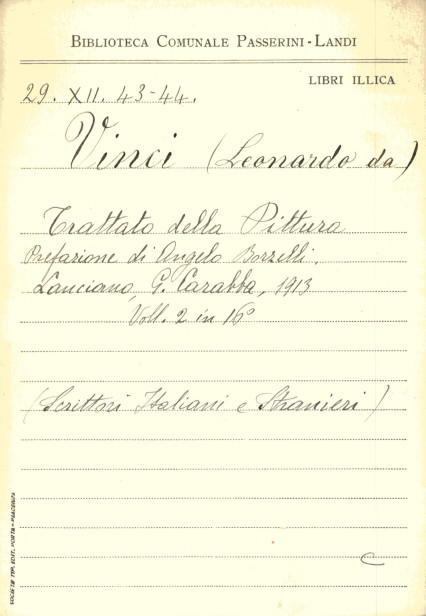 BIBLIOTECA COMUNALE PASSERINI-LANDI
LIBRI ILLICA
29. XII. 43-44.
Vinci (Leonardo da)
Trattato della Pittura
Prefazione di Angelo Borzelli.
Lanciano, G. Carabba, 1913
Voll. 2 in 16º
(Scrittori Italiani e Stranieri)
SOCIETÀ TIP. EDIT. PORTA - PIACENZA
C